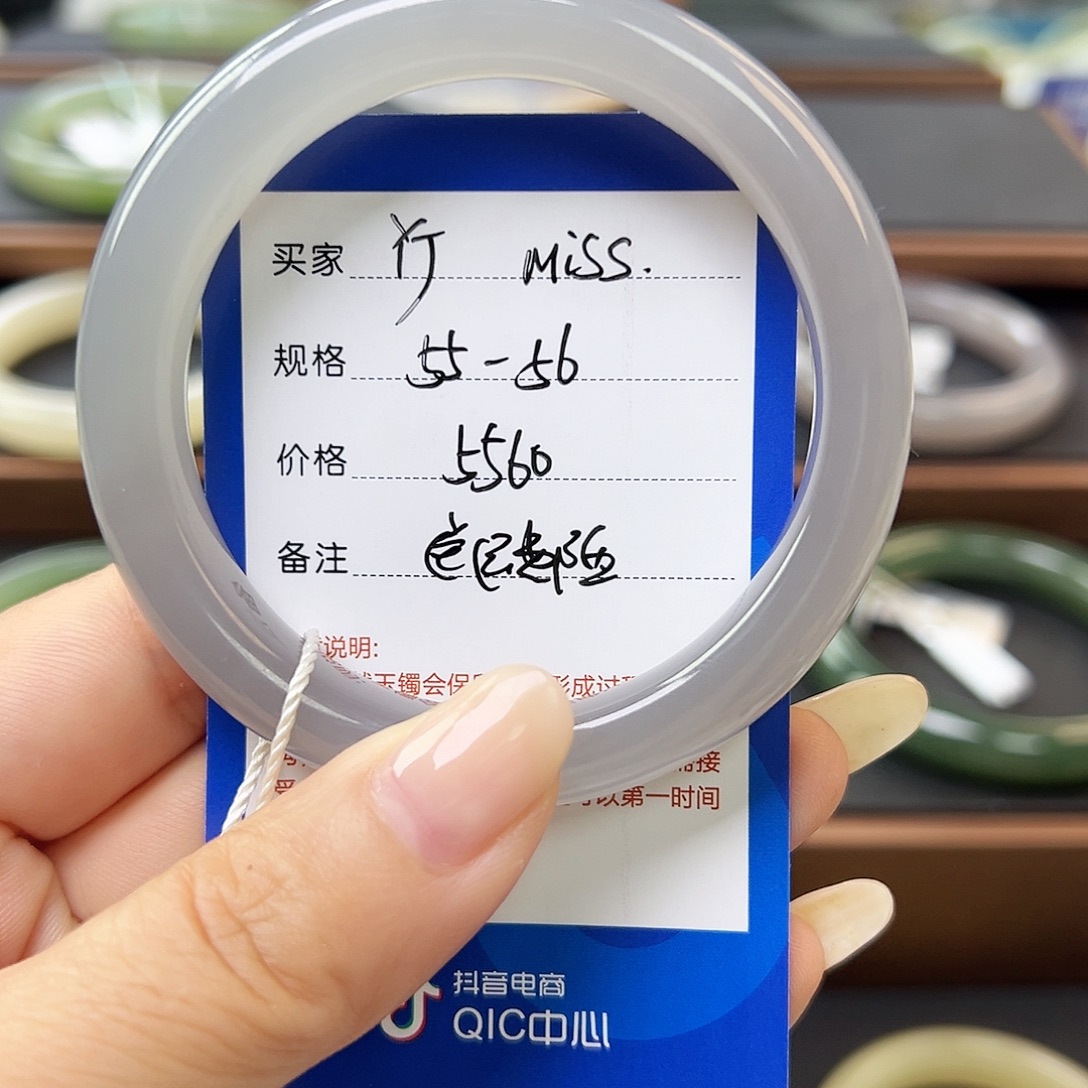 买家 MiSS.
规格 55-56
价格 5560
备注
说明:
玉镯会保 形成过
接
可以第一时间
抖音电商
QIC中心